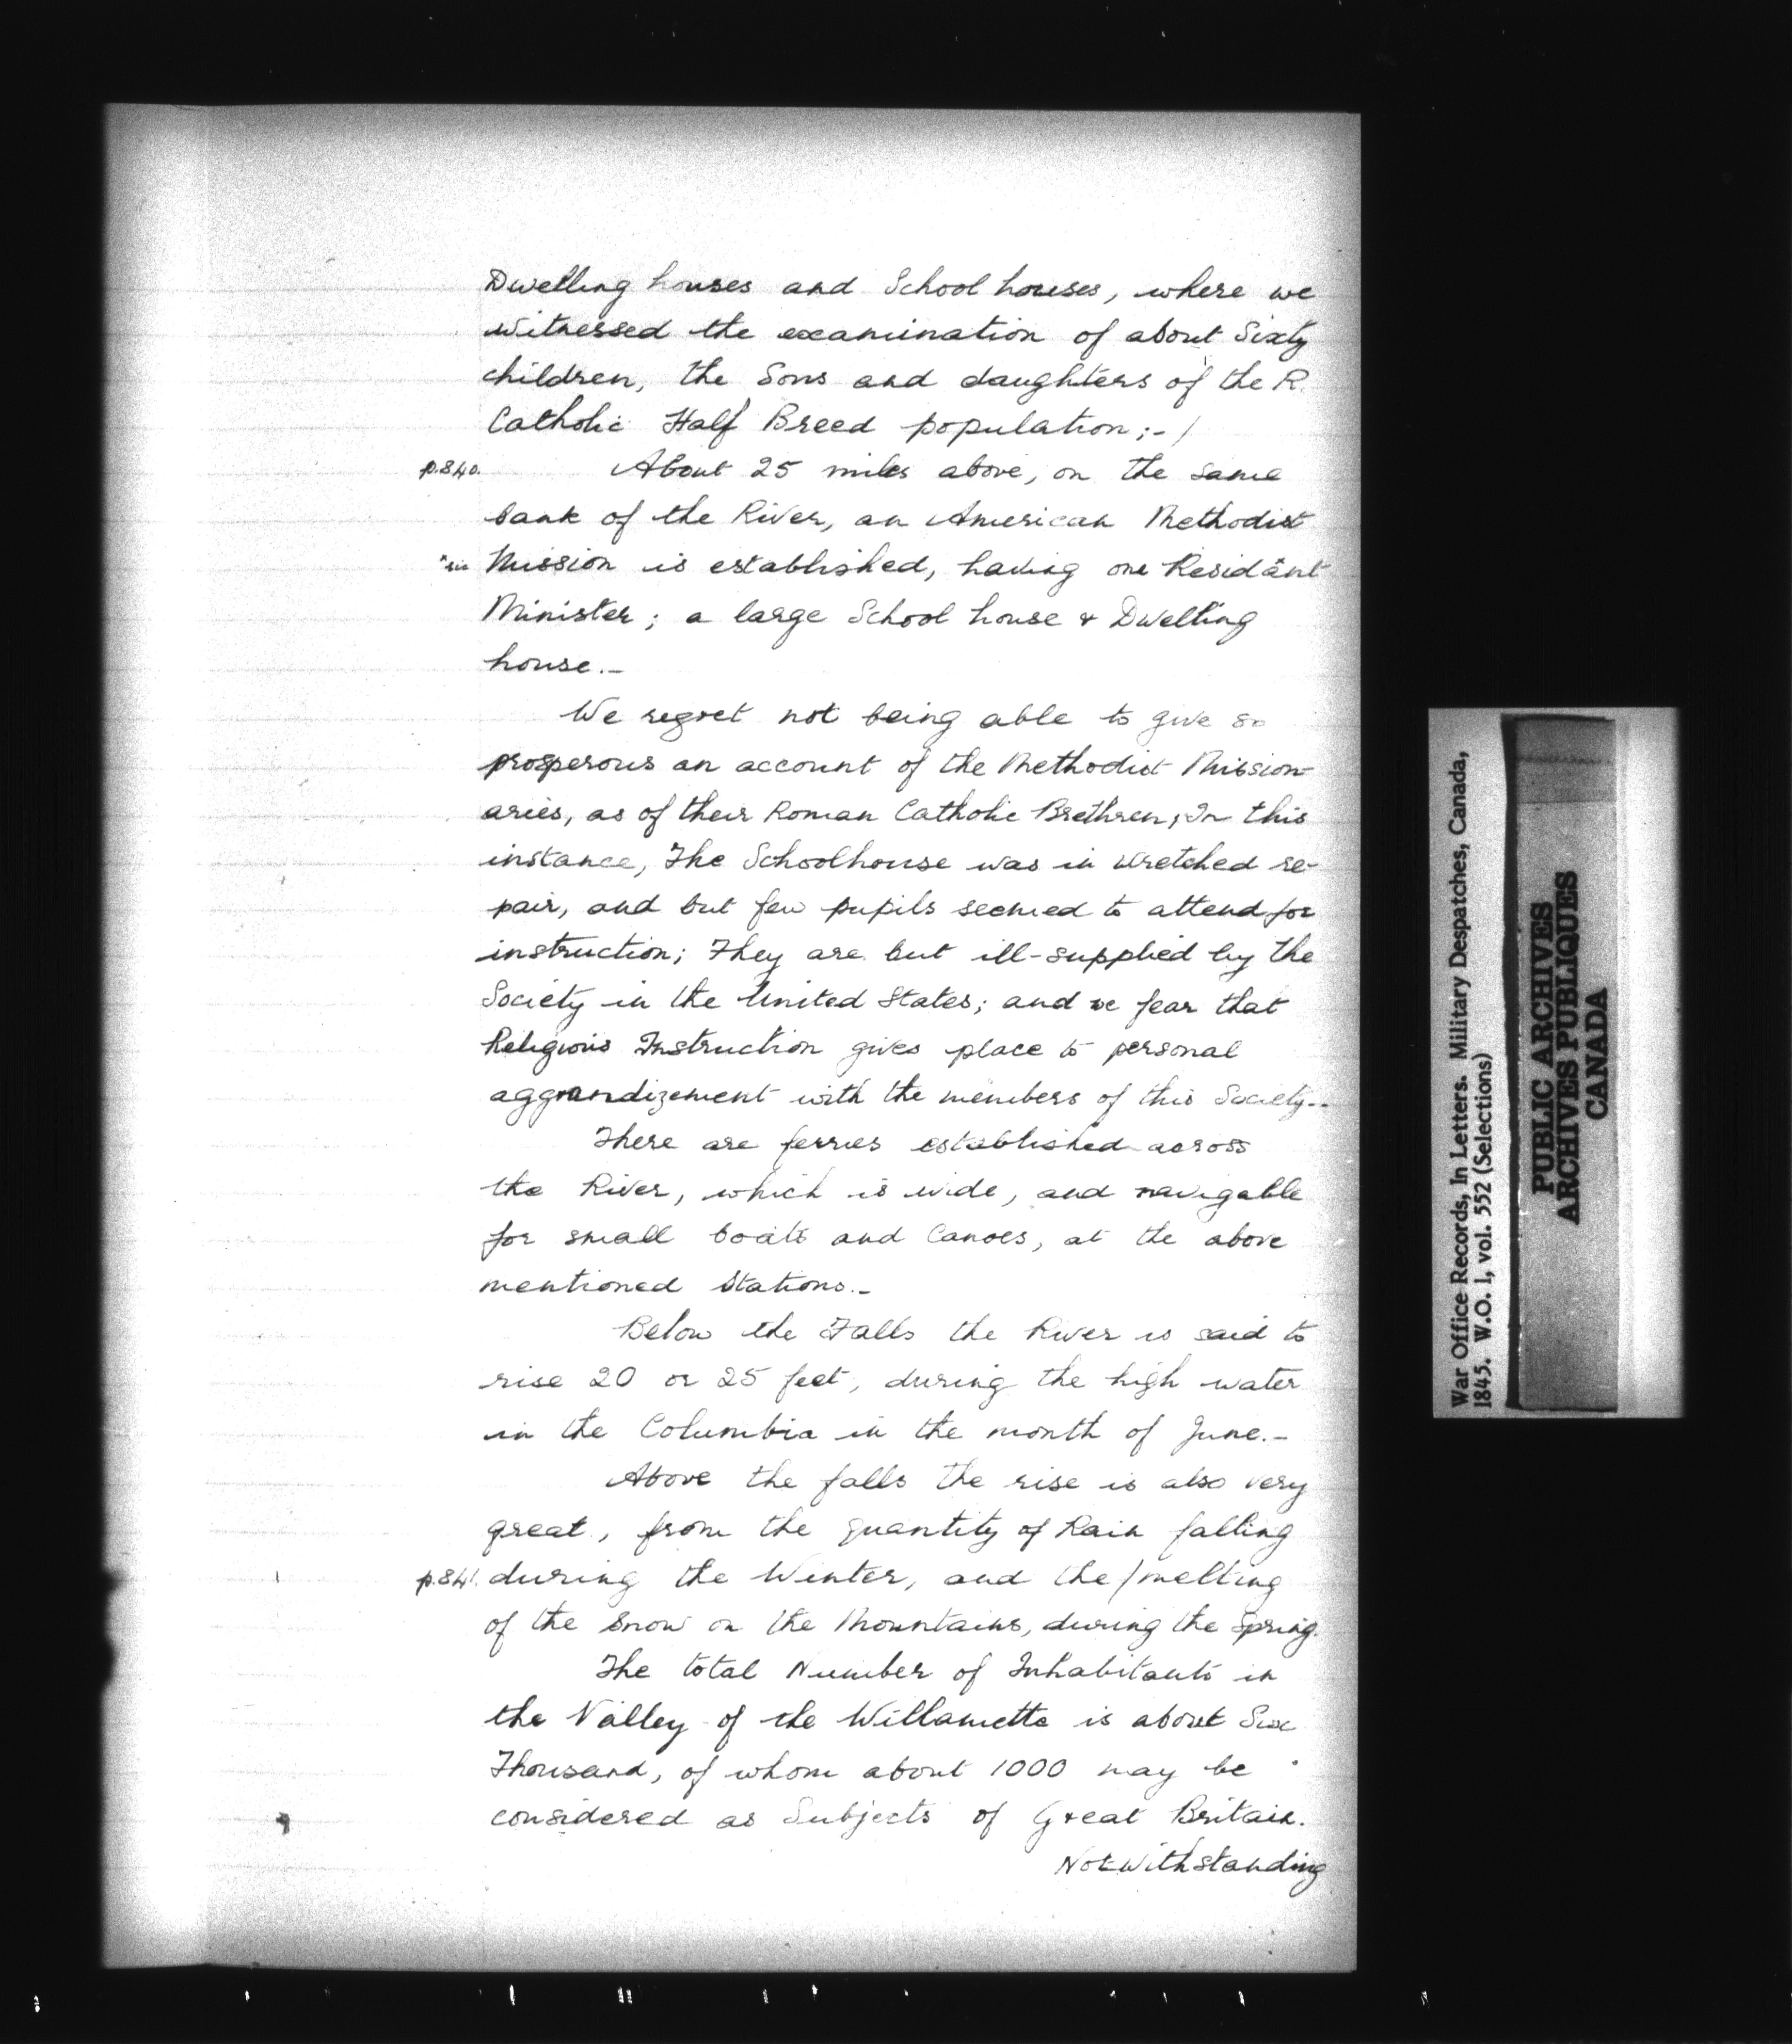 Dwelling houses and School houses, where we
witnessed the examination of about Sixty
children, the Sons and daughters of the R.
Catholic Half Breed population;-/
p.840. About 25 miles above, on the same
bank of the River, an American Methodist
Mission is established, having one Residänt
Minister; a large School house & Dwelling
house.-
We regret not being able to give so
prosperous an account of the Methodist Mission-
aries, as of their Roman Catholic Brethren; In this
instance, The Schoolhouse was in wretched re-
pair, and but few pupils seemed to attend for
instruction; They are but ill-supplied by the
Society in the United States; and we fear that
Religious Instruction gives place to personal
aggrandizement with the members of this Society.-
There are ferries established across
the River, which is wide, and navigable
for small boats and Canoes, at the above
mentioned Stations.-
Below the Falls the River is said to
rise 20 or 25 feet, during the high water
in the Columbia in the month of June.-
Above the falls the rise is also very
great, from the quantity of Rain falling
p.841. during the Winter, and the/melting
of the Snow on the Mountains, during the Spring.
The total Number of Inhabitants in
the Valley of the Willamette is about Six
Thousand, of whom about 1000 may be
considered as Subjects of Great Britain.
Notwithstanding
War Office Records, In Letters. Military Despatches, Canada,
1845. W.O. 1, vol. 552 (Selections)
PUBLIC ARCHIVES
ARCHIVES PUBLIQUES
CANADA